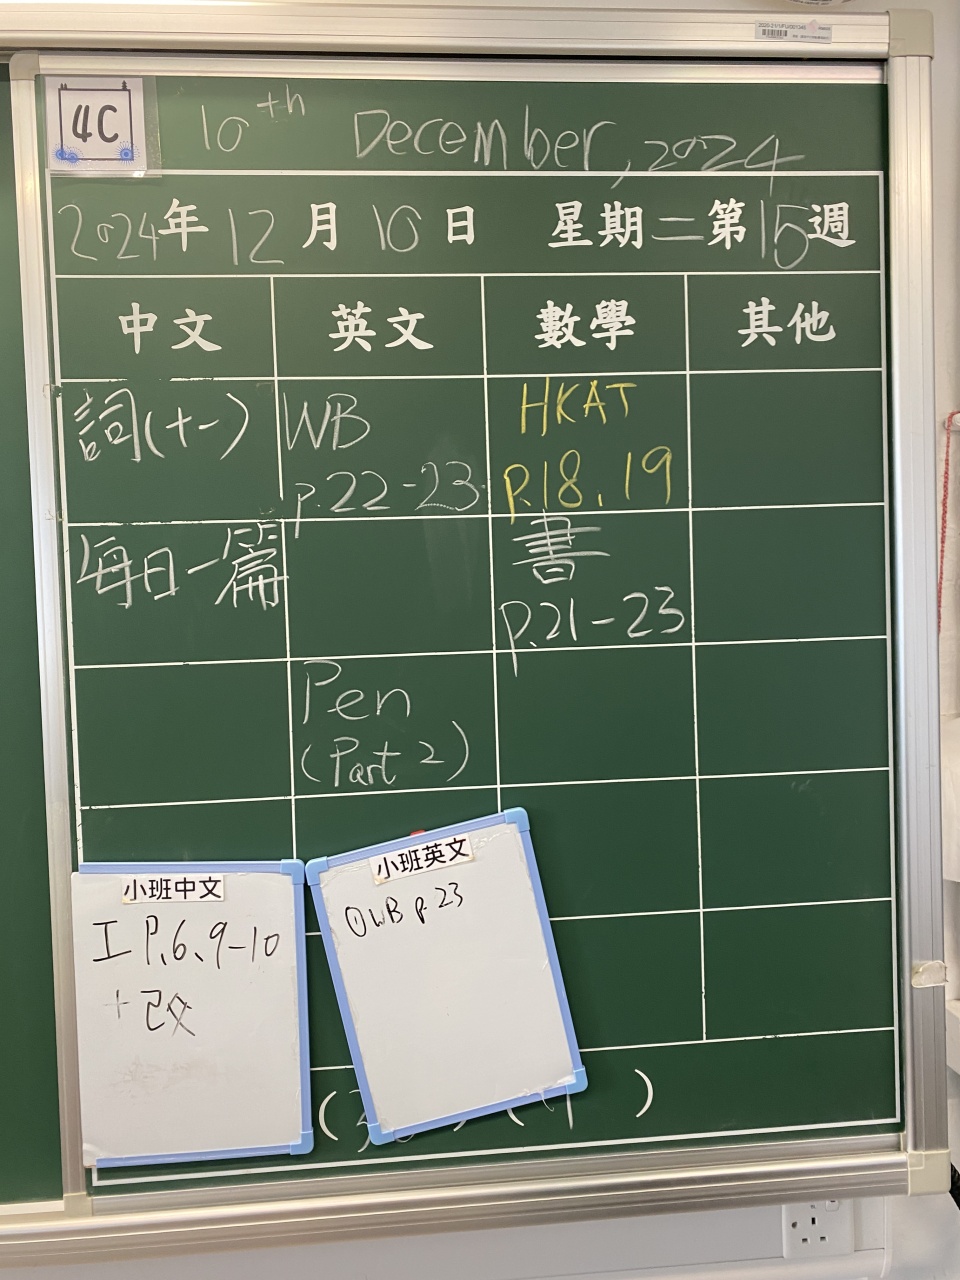 4C
10th December, 2024
2024年12月10日 星期二第15週
中文 英文 數學 其他
詞(十一)
WB
p.22-23
HKAT
P.18、19
每日一篇
書
p.21-23
Pen
(Part 2)
小班中文
工 P.6、9-10
+改
小班英文
①WB p.23